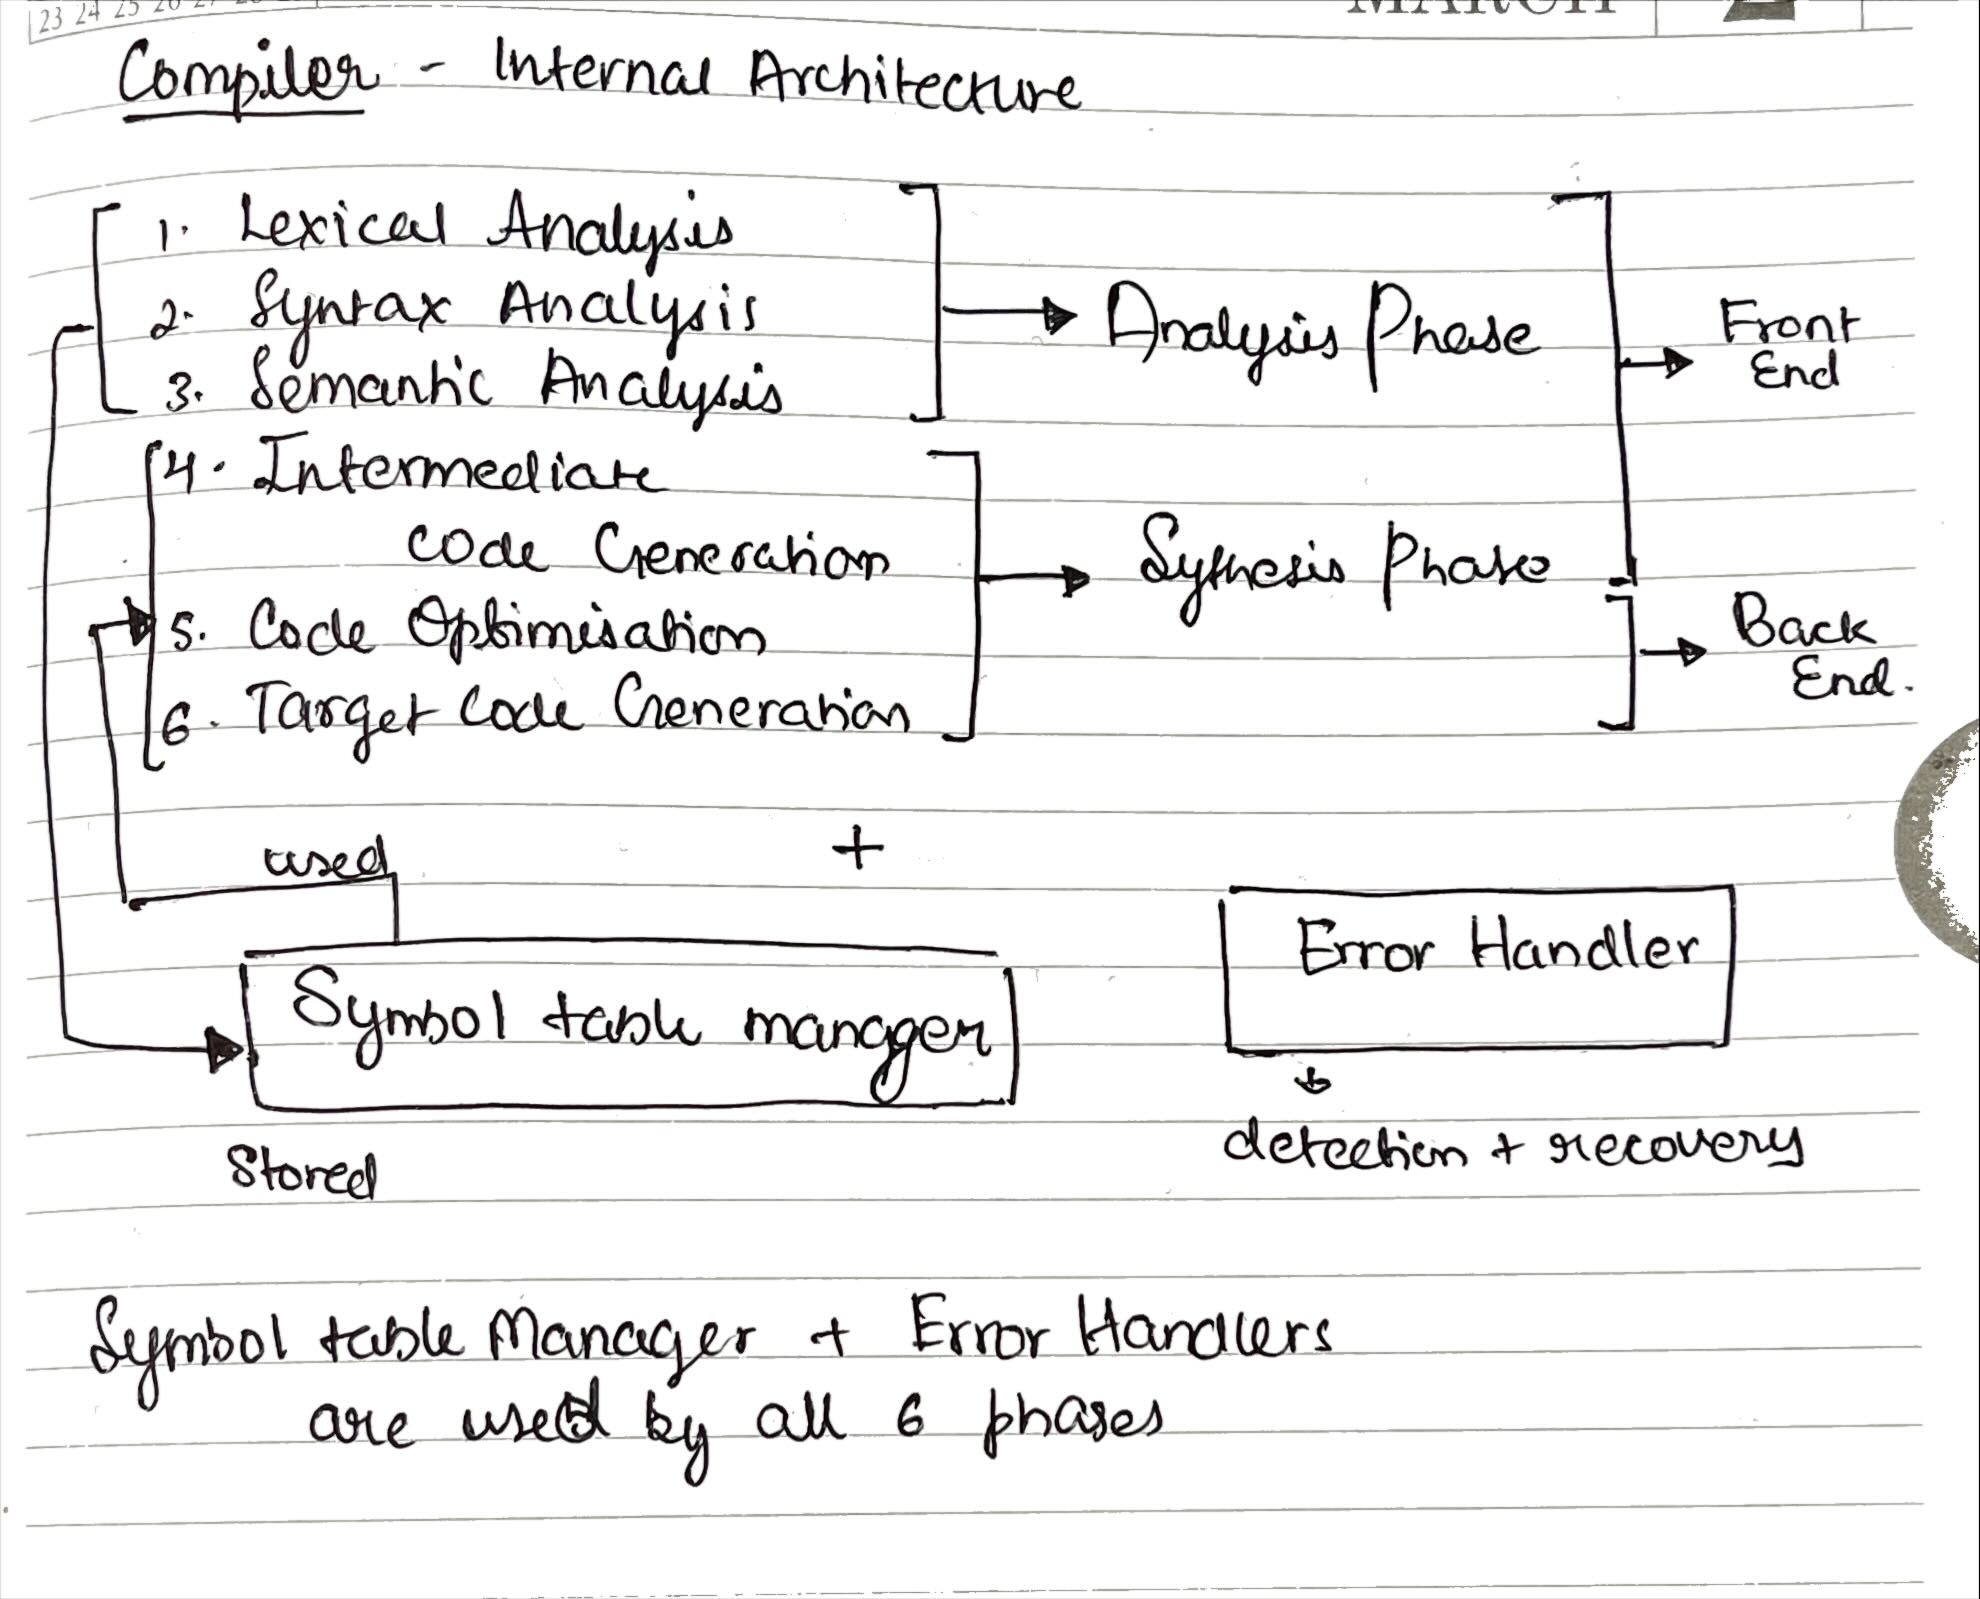 23 24 25 26 27
MARCH
Compiler - Internal Architecture
1. Lexical Analysis
2. Syntax Analysis
3. Semantic Analysis
Analysis Phase
Front
End
4. Intermediate
code Generation
5. Code Optimisation
6. Target Code Generation
Sythesis Phase
Back
End.
used
+
Symbol table manager
Error Handler
Stored
detection + recovery
Symbol table Manager + Error Handlers
are used by all 6 phases